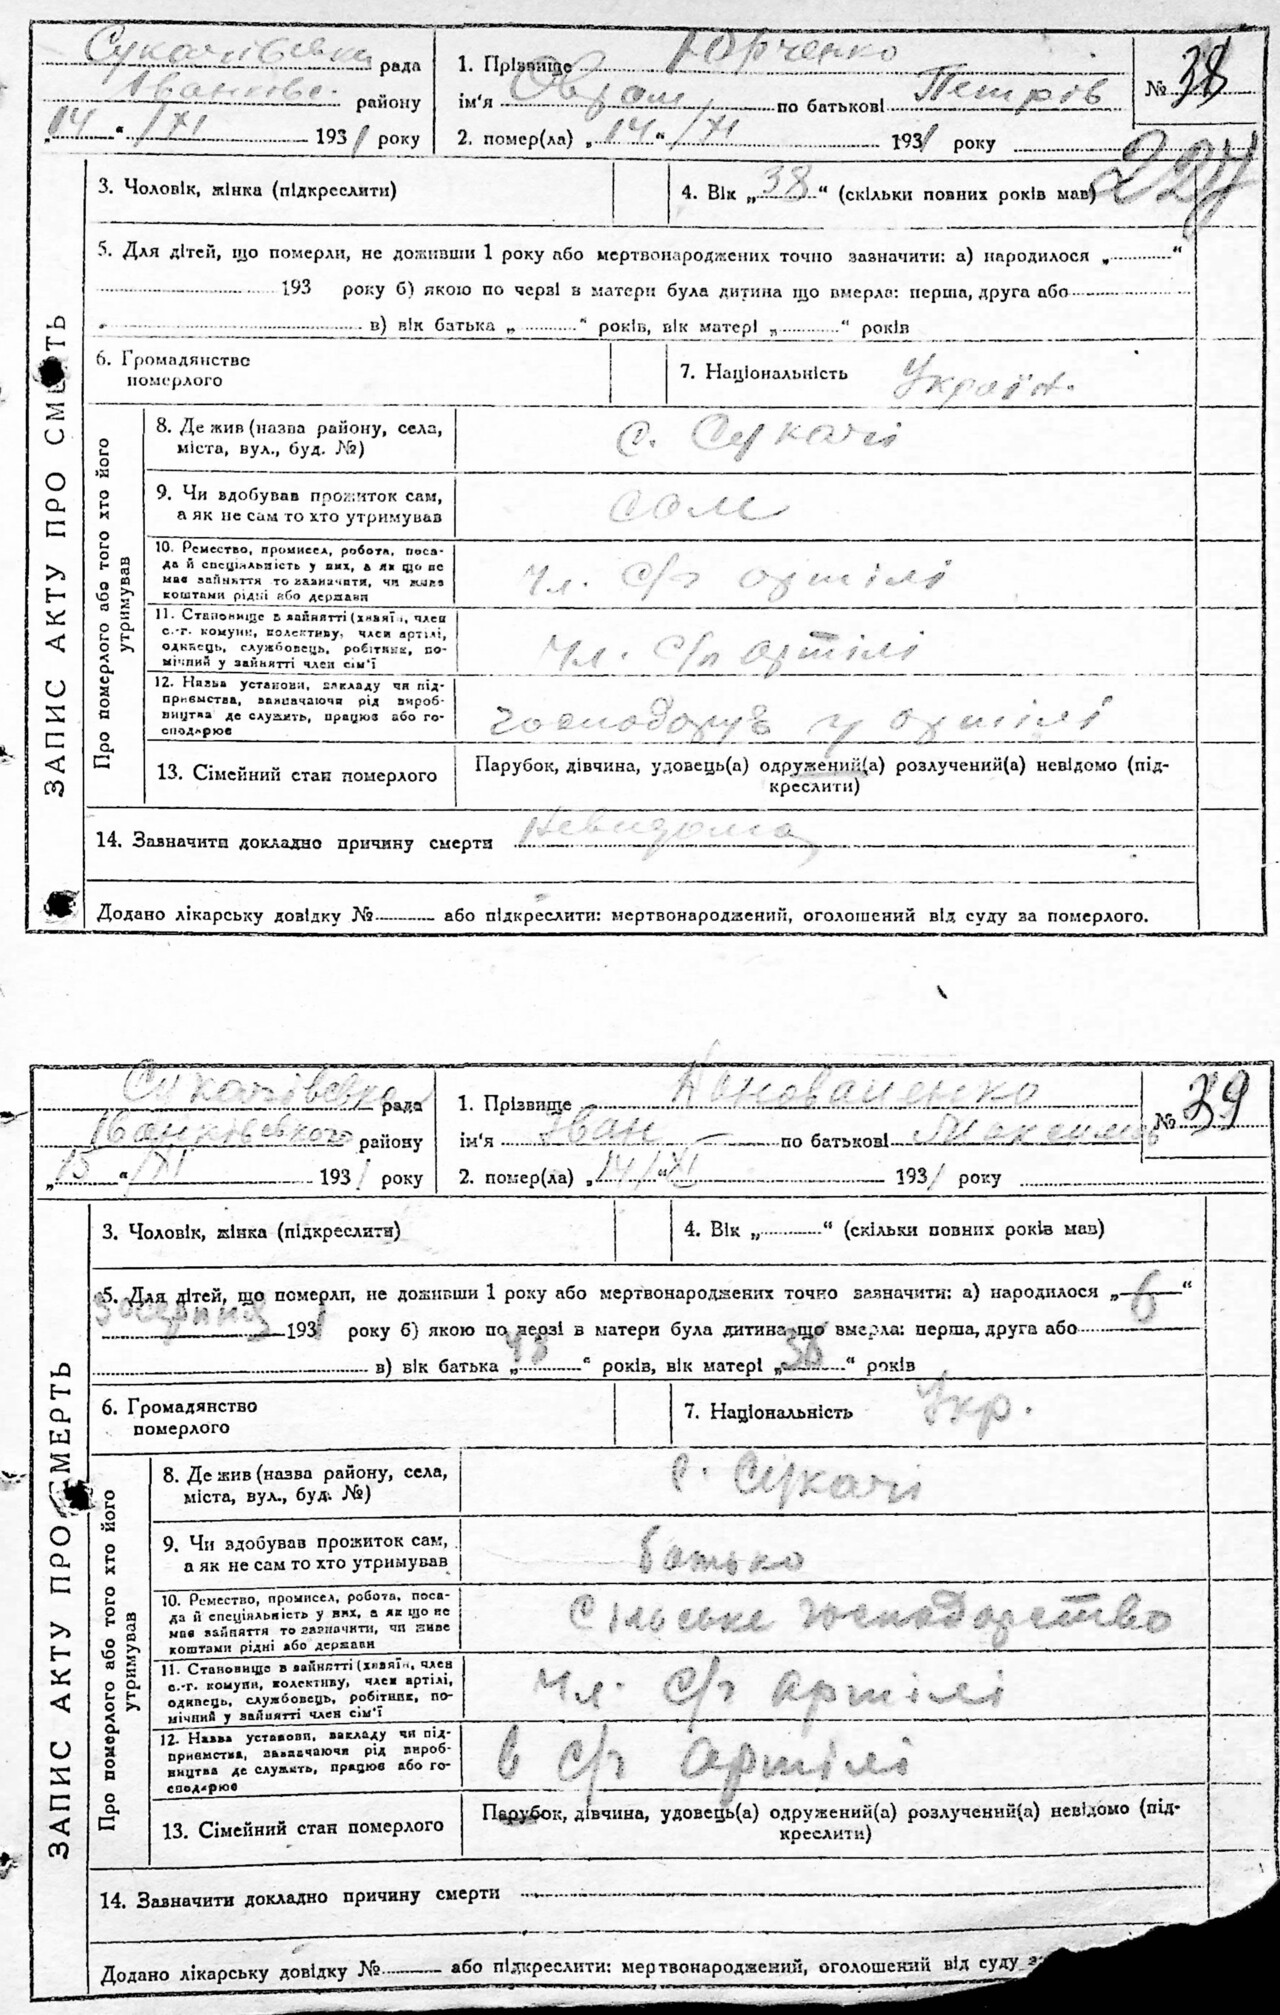 Сукачівська рада
Іванків. району
„14“ /XI 1931 року
1. Прізвище Юрченко
ім'я Оврам по батькові Петрів
2. помер(ла) „14“ /XI 1931 року
№ 38
227
3. Чоловік, жінка (підкреслити)
4. Вік „38“ (скільки повних років мав)
5. Для дітей, що померли, не доживши 1 року або мертвонароджених точно зазначити: а) народилося „ “
193 року б) якою по черзі в матери була дитина що вмерла: перша, друга або
в) вік батька „ “ років, вік матері „ “ років
6. Громадянство
померлого
7. Національність Україн.
ЗАПИС АКТУ ПРО СМЕРТЬ
Про померлого або того хто його
утримував
8. Де жив (назва району, села,
міста, вул., буд. №)
с. Сукачі
9. Чи здобував прожиток сам,
а як не сам то хто утримував
сам
10. Ремество, промисел, робота, поса-
да й спеціяльність у них, а як що не
має зайняття то зазначити, чи живе
коштами рідні або держави
чл. с/г артілі
11. Становище в зайнятті (хазяїн, член
с.-г. комуни, колективу, член артілі,
одинець, службовець, робітник, по-
мічний у зайнятті член сім'ї
чл. с/г артілі
12. Назва установи, закладу чи під-
приємства, зазначаючи рід вироб-
ництва де служить, працює або го-
сподарює
господарує у артілі
13. Сімейний стан померлого
Парубок, дівчина, удовець(а) одружений(а) розлучений(а) невідомо (під-
креслити)
14. Зазначити докладно причину смерти невидома
Додано лікарську довідку № або підкреслити: мертвонароджений, оголошений від суду за померлого.
Сукачівська рада
Іванківського району
„15“ /XI 1931 року
1. Прізвище Коноваленко
ім'я Іван по батькові Максимов
2. помер(ла) „14/“XI 1931 року
№ 39
3. Чоловік, жінка (підкреслити)
4. Вік „ “ (скільки повних років мав)
5. Для дітей, що померли, не доживши 1 року або мертвонароджених точно зазначити: а) народилося „6“
1931 року б) якою по черзі в матери була дитина що вмерла: перша, друга або
в) вік батька „ “ років, вік матері „38“ років
6. Громадянство
померлого
7. Національність Укр.
ЗАПИС АКТУ ПРО СМЕРТЬ
Про померлого або того хто його
утримував
8. Де жив (назва району, села,
міста, вул., буд. №)
с. Сукачі
9. Чи здобував прожиток сам,
а як не сам то хто утримував
батько
10. Ремество, промисел, робота, поса-
да й спеціяльність у них, а як що не
має зайняття то зазначити, чи живе
коштами рідні або держави
Сільське господарство
11. Становище в зайнятті (хазяїн, член
с.-г. комуни, колективу, член артілі,
одинець, службовець, робітник, по-
мічний у зайнятті член сім'ї
чл. с/г артілі
12. Назва установи, закладу чи під-
приємства, зазначаючи рід вироб-
ництва де служить, працює або го-
сподарює
в с/г артілі
13. Сімейний стан померлого
Парубок, дівчина, удовець(а) одружений(а) розлучений(а) невідомо (під-
креслити)
14. Зазначити докладно причину смерти
Додано лікарську довідку № або підкреслити: мертвонароджений, оголошений від суду